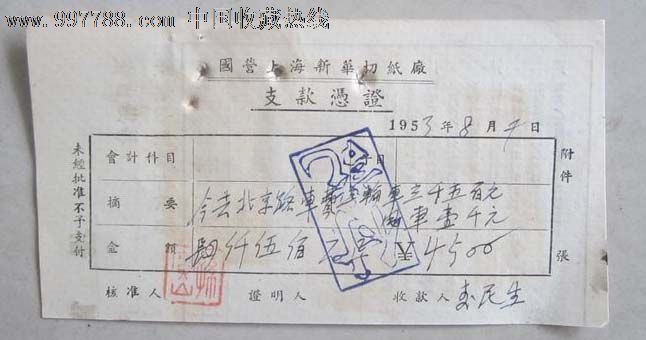 www.997788.com 中国收藏热线
國營上海新華切紙廠
支款憑證
1953年8月 日
會計科目
摘要 今去北京路車費三輪車三千五百元
車壹千元
金額 肆仟伍佰 4500
未經批准不予支付
附件 張
核准人 證明人 收款人